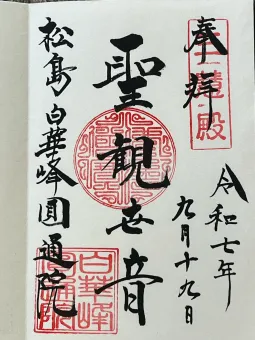 奉拝
三慧殿
令和七年
九月十九日
聖観世音
松島 白華峰圓通院
白華峰
圓通院